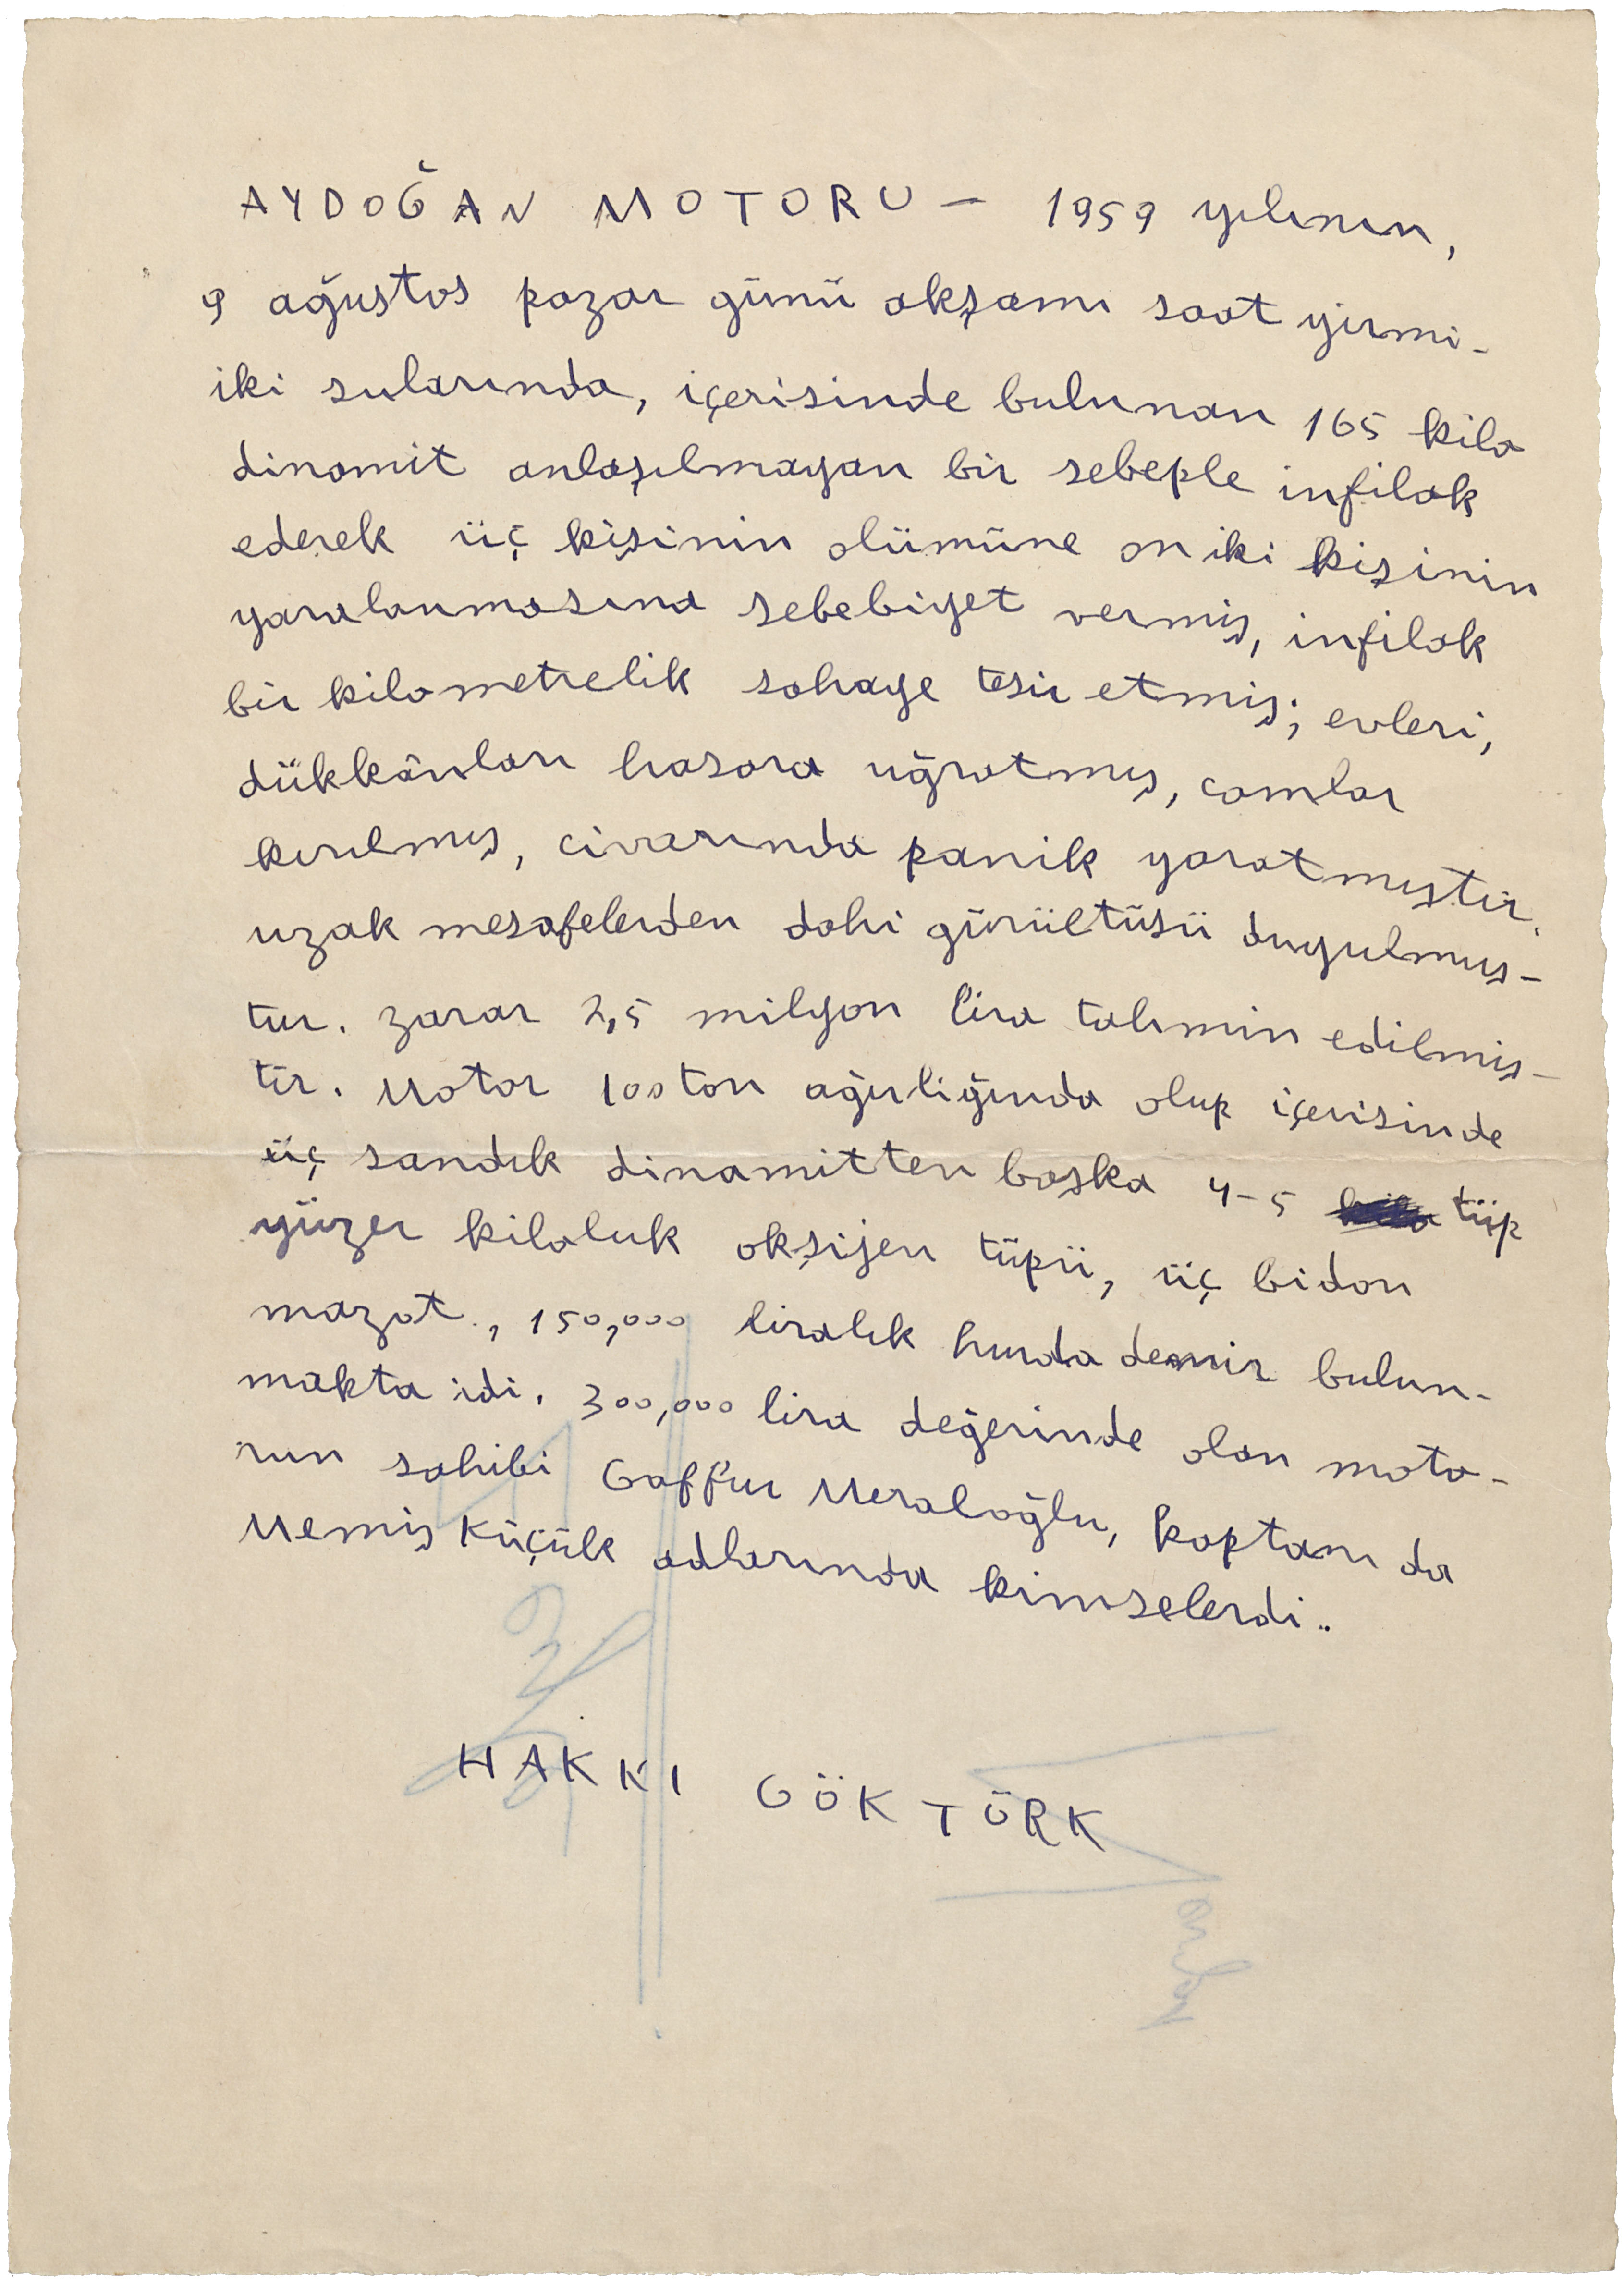 AYDOĞAN MOTORU — 1959 yılının,
9 ağustos pazar günü akşamı saat yirmi-
iki sularında, içerisinde bulunan 165 kilo
dinamit anlaşılmayan bir sebeple infilak
ederek üç kişinin ölümüne on iki kişinin
yaralanmasına sebebiyet vermiş, infilak
bir kilometrelik sahaye tesir etmiş; evleri,
dükkânları hasara uğratmış, camlar
kırılmış, civarında panik yaratmıştır,
uzak mesafelerden dahi gürültüsü duyulmuş-
tur. Zarar 2,5 milyon lira tahmin edilmiş-
tir. Motor 100 ton ağırlığında olup içerisinde
üç sandık dinamitten başka 4-5 tüp
yüzer kiloluk oksijen tüpü, üç bidon
mazot, 150,000 liralık hurda demir bulun-
makta idi. 300,000 lira değerinde olan moto-
run sahibi Gaffur Meraloğlu, kaptanı da
Memiş Küçük adlarında kimselerdi..
HAKKI GÖKTÜRK